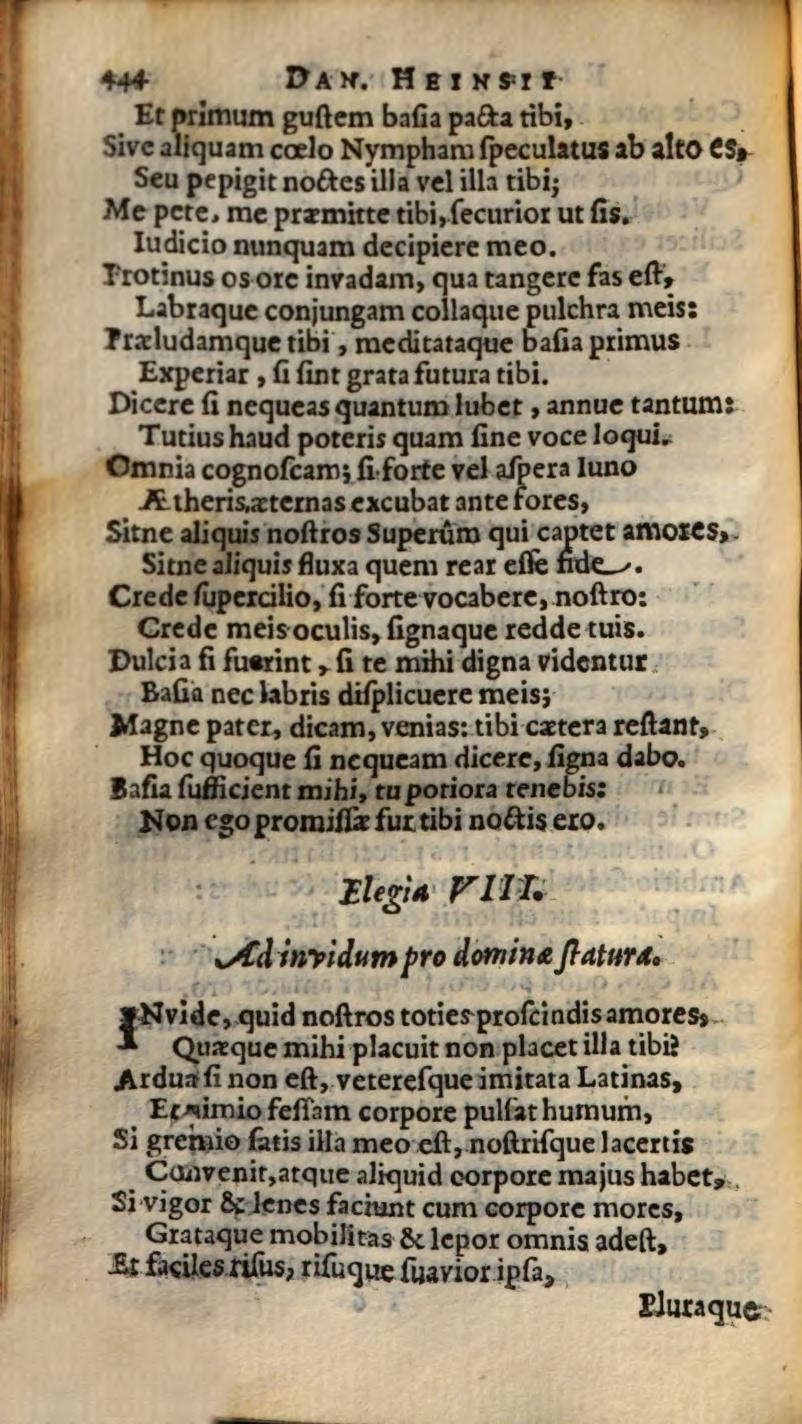 444 DAN. HEINSII
Et primum guſtem baſia pacta tibi,
Sive aliquam cœlo Nympham ſpeculatus ab alto es,
Seu pepigit noctes illa vel illa tibi;
Me pete, me præmitte tibi, ſecurior ut ſis.
Iudicio nunquam decipiere meo.
Protinus os ore invadam, qua tangere fas eſt,
Labraque conjungam collaque pulchra meis:
Præludamque tibi, meditataque baſia primus
Experiar, ſi ſint grata futura tibi.
Dicere ſi nequeas quantum lubet, annue tantum:
Tutius haud poteris quam ſine voce loqui.
Omnia cognoſcam; ſi forte vel aſpera Iuno
Ætheris æternas excubat ante fores,
Sitne aliquis noſtros Superûm qui captet amores,
Sitne aliquis fluxa quem rear eſſe fide.
Crede ſupercilio, ſi forte vocabere, noſtro:
Crede meis oculis, ſignaque redde tuis.
Dulcia ſi fuerint, ſi te mihi digna videntur
Baſia nec labris diſplicuere meis;
Magne pater, dicam, venias: tibi cætera reſtant,
Hoc quoque ſi nequeam dicere, ſigna dabo.
Baſia ſufficient mihi, tu potiora tenebis:
Non ego promiſſæ fur tibi noctis ero.
Elegia VIII.
Ad invidum pro dominæ ſtatura.
INvide, quid noſtros toties proſcindis amores,
Quæque mihi placuit non placet illa tibi?
Ardua ſi non eſt, vetereſque imitata Latinas,
Et nimio feſſam corpore pulſat humum,
Si gremio ſatis illa meo eſt, noſtriſque lacertis
Convenit, atque aliquid corpore majus habet,
Si vigor & lenes faciunt cum corpore mores,
Grataque mobilitas & lepor omnis adeſt,
Et faciles riſus, riſuque ſuavior ipſa,
Pluraque